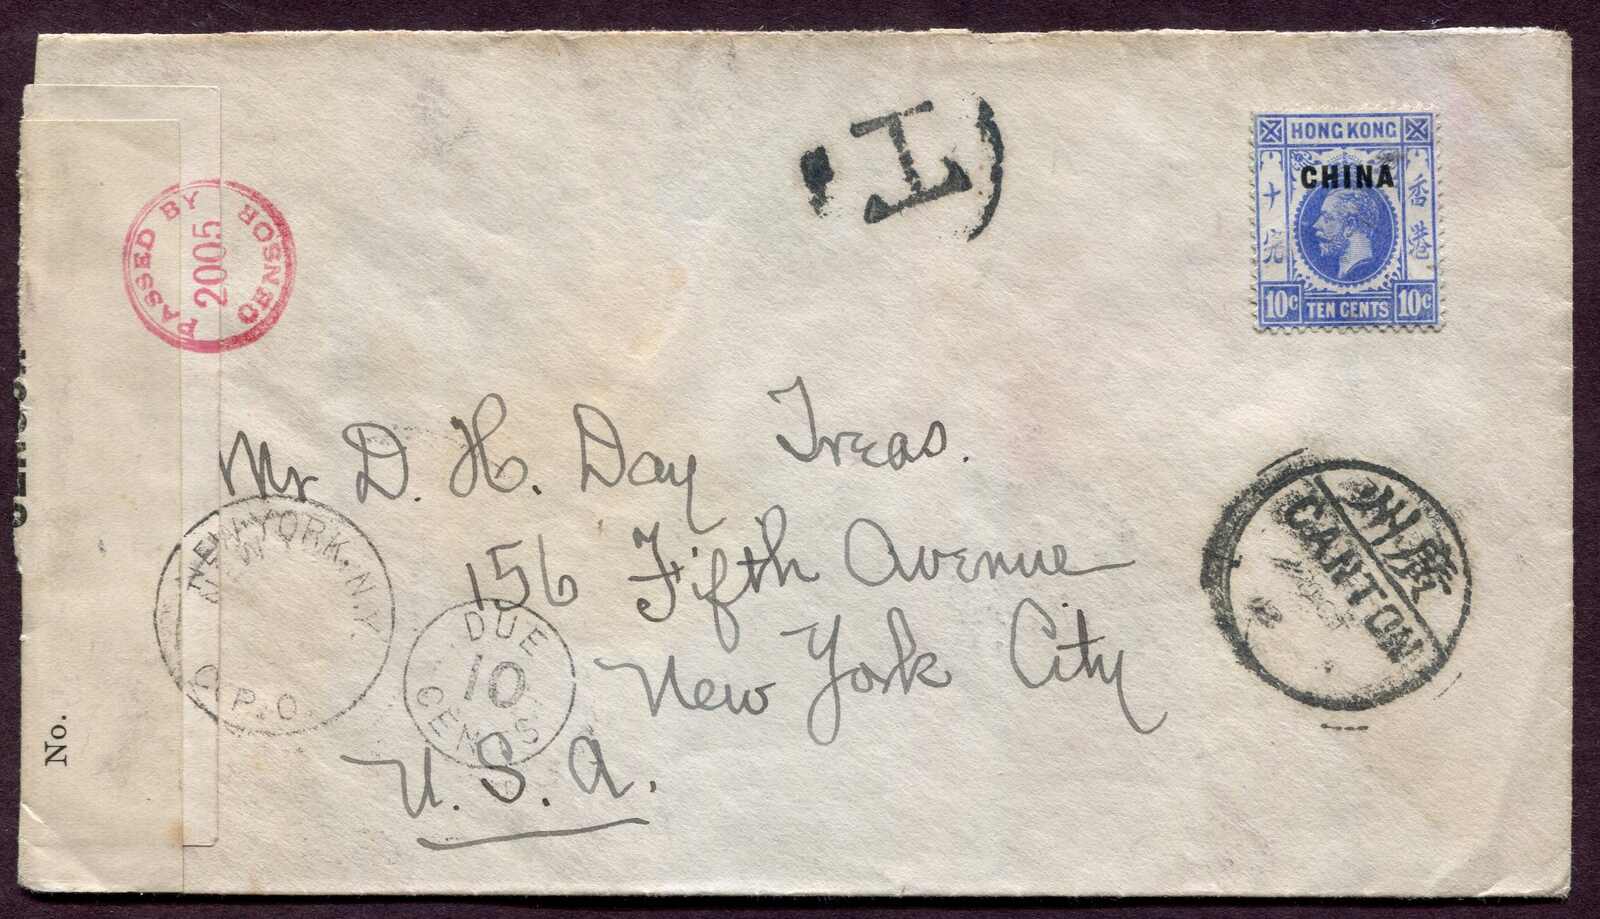 HONG KONG
CHINA
十 香
港
10c TEN CENTS 10c
T
PASSED BY
2005
CENSOR
Mr D. H. Day Treas.
156 Fifth Avenue
New York City
U. S. A.
NEW YORK. N.Y.
P.O.
DUE
10
CENTS
州廣
CANTON
No.